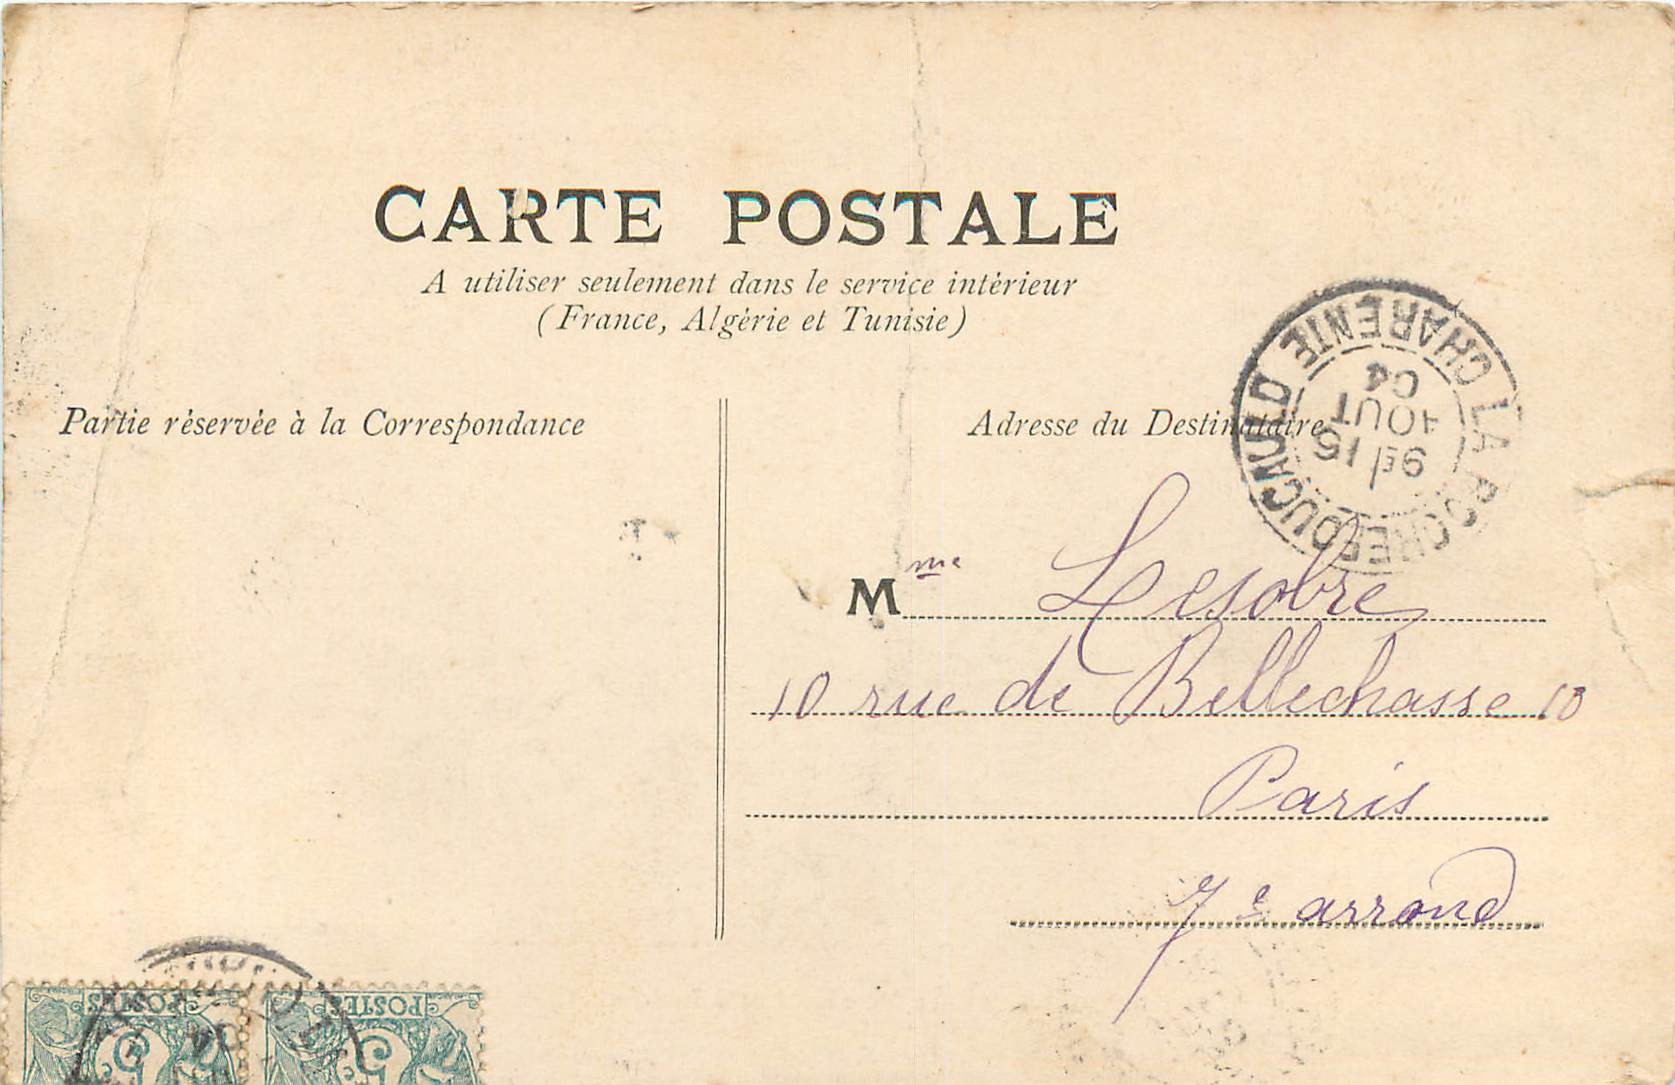 CARTE POSTALE
A utiliser seulement dans le service intérieur
(France, Algérie et Tunisie)
Partie réservée à la Correspondance
Adresse du Destinataire
LA ROCHEFOUCAULD
CHARENTE
9E 15
AOUT
04
Mme Lesobre
10 rue de Bellechasse 10
Paris
7e arrond
POSTES
5c
POSTES
5c